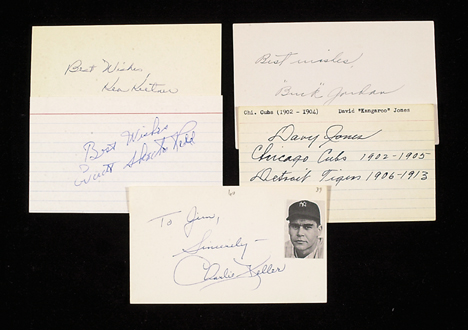 Best Wishes,
Ken Keltner
Best wishes,
"Buck" Jordan
Best Wishes
Chi. Cubs (1902 - 1904) David "Kangaroo" Jones
Davy Jones
Chicago Cubs 1902-1905
Detroit Tigers 1906-1913
To Jim,
Sincerely -
Charlie Keller